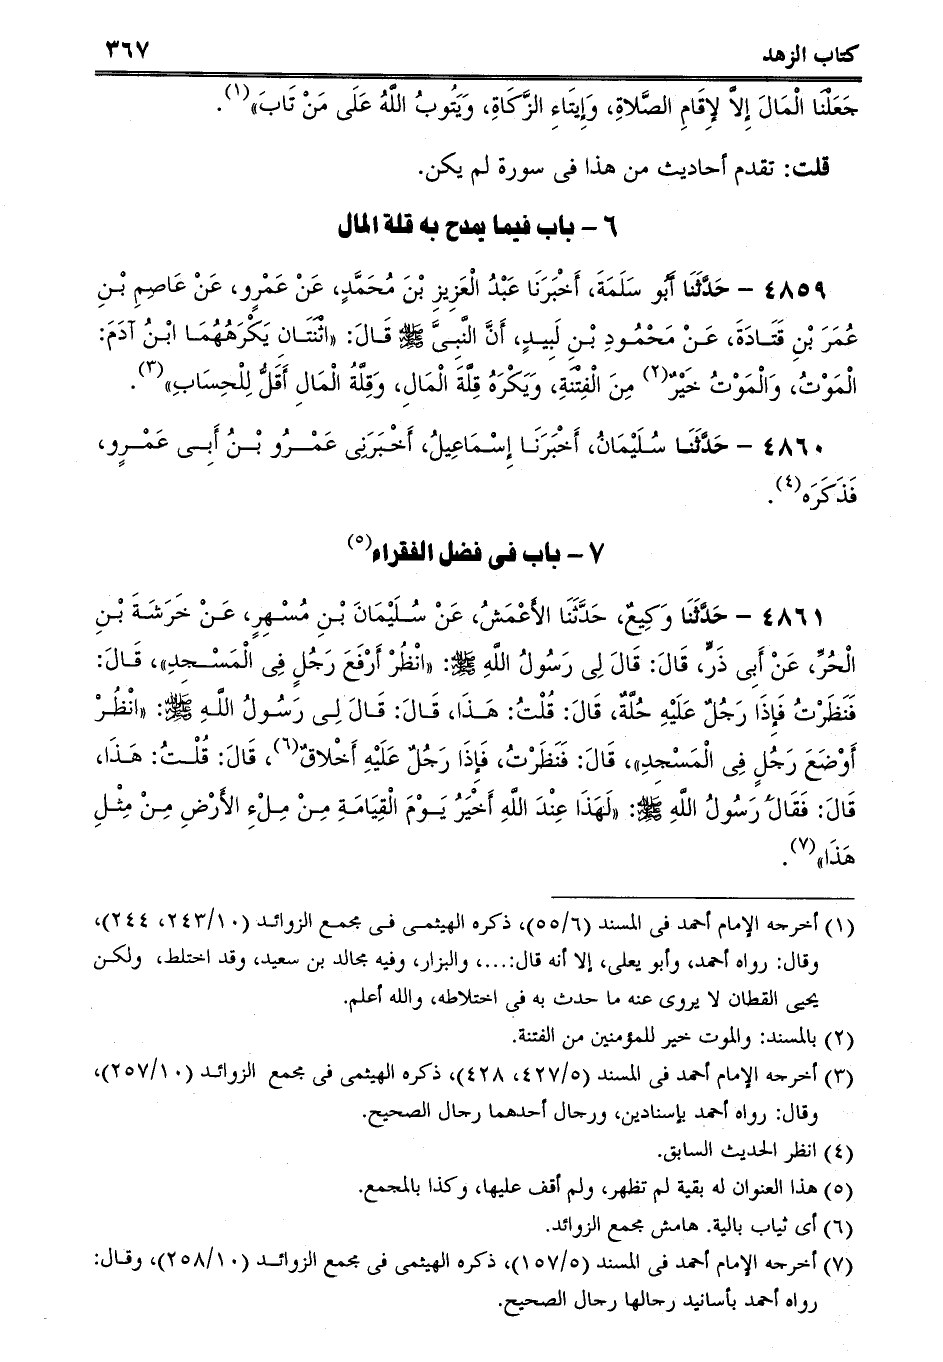 كتاب الزهد ٣٦٧
جَعَلْنَا الْمَالَ إِلاَّ لإِقَامِ الصَّلاةِ، وَإِيتَاءِ الزَّكَاةِ، وَيَتُوبُ اللَّهُ عَلَى مَنْ تَابَ»(١).
قلت: تقدم أحاديث من هذا فى سورة لم يكن.
٦ – باب فيما يمدح به قلة المال
٤٨٥٩ – حَدَّثَنَا أَبُو سَلَمَةَ، أَخْبَرَنَا عَبْدُ الْعَزِيزِ بْنُ مُحَمَّدٍ، عَنْ عَمْرٍو، عَنْ عَاصِمِ بْنِ
عُمَرَ بْنِ قَتَادَةَ، عَنْ مَحْمُودِ بْنِ لَبِيدٍ، أَنَّ النَّبِىَّ ﷺ قَالَ: «اثْنَتَانِ يَكْرَهُهُمَا ابْنُ آدَمَ:
الْمَوْتُ، وَالْمَوْتُ خَيْرٌ(٢) مِنَ الْفِتْنَةِ، وَيَكْرَهُ قِلَّةَ الْمَالِ، وَقِلَّةُ الْمَالِ أَقَلُّ لِلْحِسَابِ»(٣).
٤٨٦٠ – حَدَّثَنَا سُلَيْمَانُ، أَخْبَرَنَا إِسْمَاعِيلُ، أَخْبَرَنِى عَمْرُو بْنُ أَبِى عَمْرٍو،
فَذَكَرَه(٤).
٧ – باب فى فضل الفقراء(٥)
٤٨٦١ – حَدَّثَنَا وَكِيعٌ، حَدَّثَنَا الأَعْمَشُ، عَنْ سُلَيْمَانَ بْنِ مُسْهِرٍ، عَنْ خَرَشَةَ بْنِ
الْحُرِّ، عَنْ أَبِى ذَرٍّ، قَالَ: قَالَ لِى رَسُولُ اللَّهِ ﷺ: «انْظُرْ أَرْفَعَ رَجُلٍ فِى الْمَسْجِدِ»، قَالَ:
فَنَظَرْتُ فَإِذَا رَجُلٌ عَلَيْهِ حُلَّةٌ، قَالَ: قُلْتُ: هَذَا، قَالَ: قَالَ لِى رَسُولُ اللَّهِ ﷺ: «انْظُرْ
أَوْضَعَ رَجُلٍ فِى الْمَسْجِدِ»، قَالَ: فَنَظَرْتُ، فَإِذَا رَجُلٌ عَلَيْهِ أَخْلاقٌ(٦)، قَالَ: قُلْتُ: هَذَا،
قَالَ: فَقَالَ رَسُولُ اللَّهِ ﷺ: «لَهَذَا عِنْدَ اللَّهِ أَخْيَرُ يَوْمَ الْقِيَامَةِ مِنْ مِلْءِ الأَرْضِ مِنْ مِثْلِ
هَذَا»(٧).
(١) أخرجه الإمام أحمد فى المسند (٥٥/٦)، ذكره الهيثمى فى مجمع الزوائد (٢٤٣/١٠، ٢٤٤)،
وقال: رواه أحمد، وأبو يعلى، إلا أنه قال:...، والبزار، وفيه مجالد بن سعيد، وقد اختلط، ولكن
يحيى القطان لا يروى عنه ما حدث به فى اختلاطه، والله أعلم.
(٢) بالمسند: والموت خير للمؤمنين من الفتنة.
(٣) أخرجه الإمام أحمد فى المسند (٤٢٧/٥، ٤٢٨)، ذكره الهيثمى فى مجمع الزوائد (٢٥٧/١٠)،
وقال: رواه أحمد بإسنادين، ورجال أحدهما رجال الصحيح.
(٤) انظر الحديث السابق.
(٥) هذا العنوان له بقية لم تظهر، ولم أقف عليها، وكذا بالمجمع.
(٦) أى ثياب بالية. هامش مجمع الزوائد.
(٧) أخرجه الإمام أحمد فى المسند (١٥٧/٥)، ذكره الهيثمى فى مجمع الزوائد (٢٥٨/١٠)، وقال:
رواه أحمد بأسانيد رجالها رجال الصحيح.